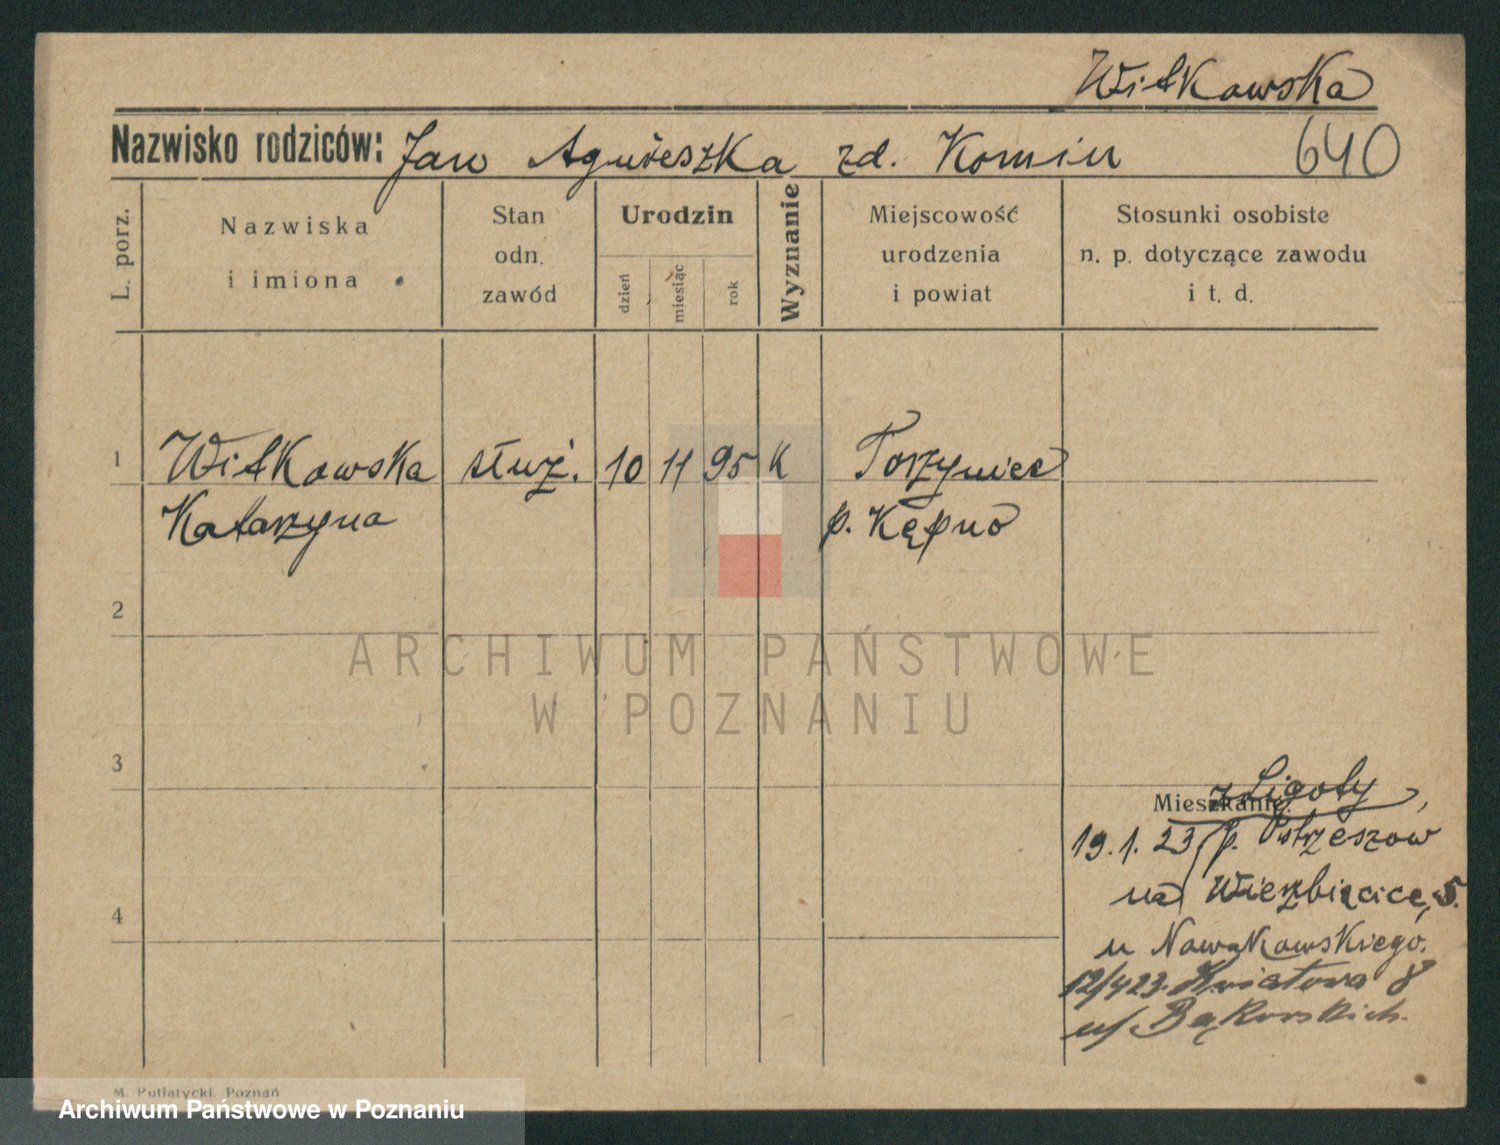 Witkowska
Nazwisko rodziców: Jan Agnieszka zd. Komin
640
L. porz.
Nazwiska
i imiona
Stan
odn.
zawód
Urodzin
dzień
miesiąc
rok
Wyznanie
Miejscowość
urodzenia
i powiat
Stosunki osobiste
n. p. dotyczące zawodu
i t. d.
1 Witkowska służ. 10 11 95 K Torzyniec
Katarzyna p. Kępno
2
3
4
z Ligoty,
Mieszkanie:
19.1.23 p. Ostrzeszów
na Wierzbięcice, 5.
u Nowakowskiego.
12/4 23. Kwiatowa 8
u/ Bąkowskich.
ARCHIWUM PAŃSTWOWE
W POZNANIU
M. Putiatycki, Poznań
Archiwum Państwowe w Poznaniu